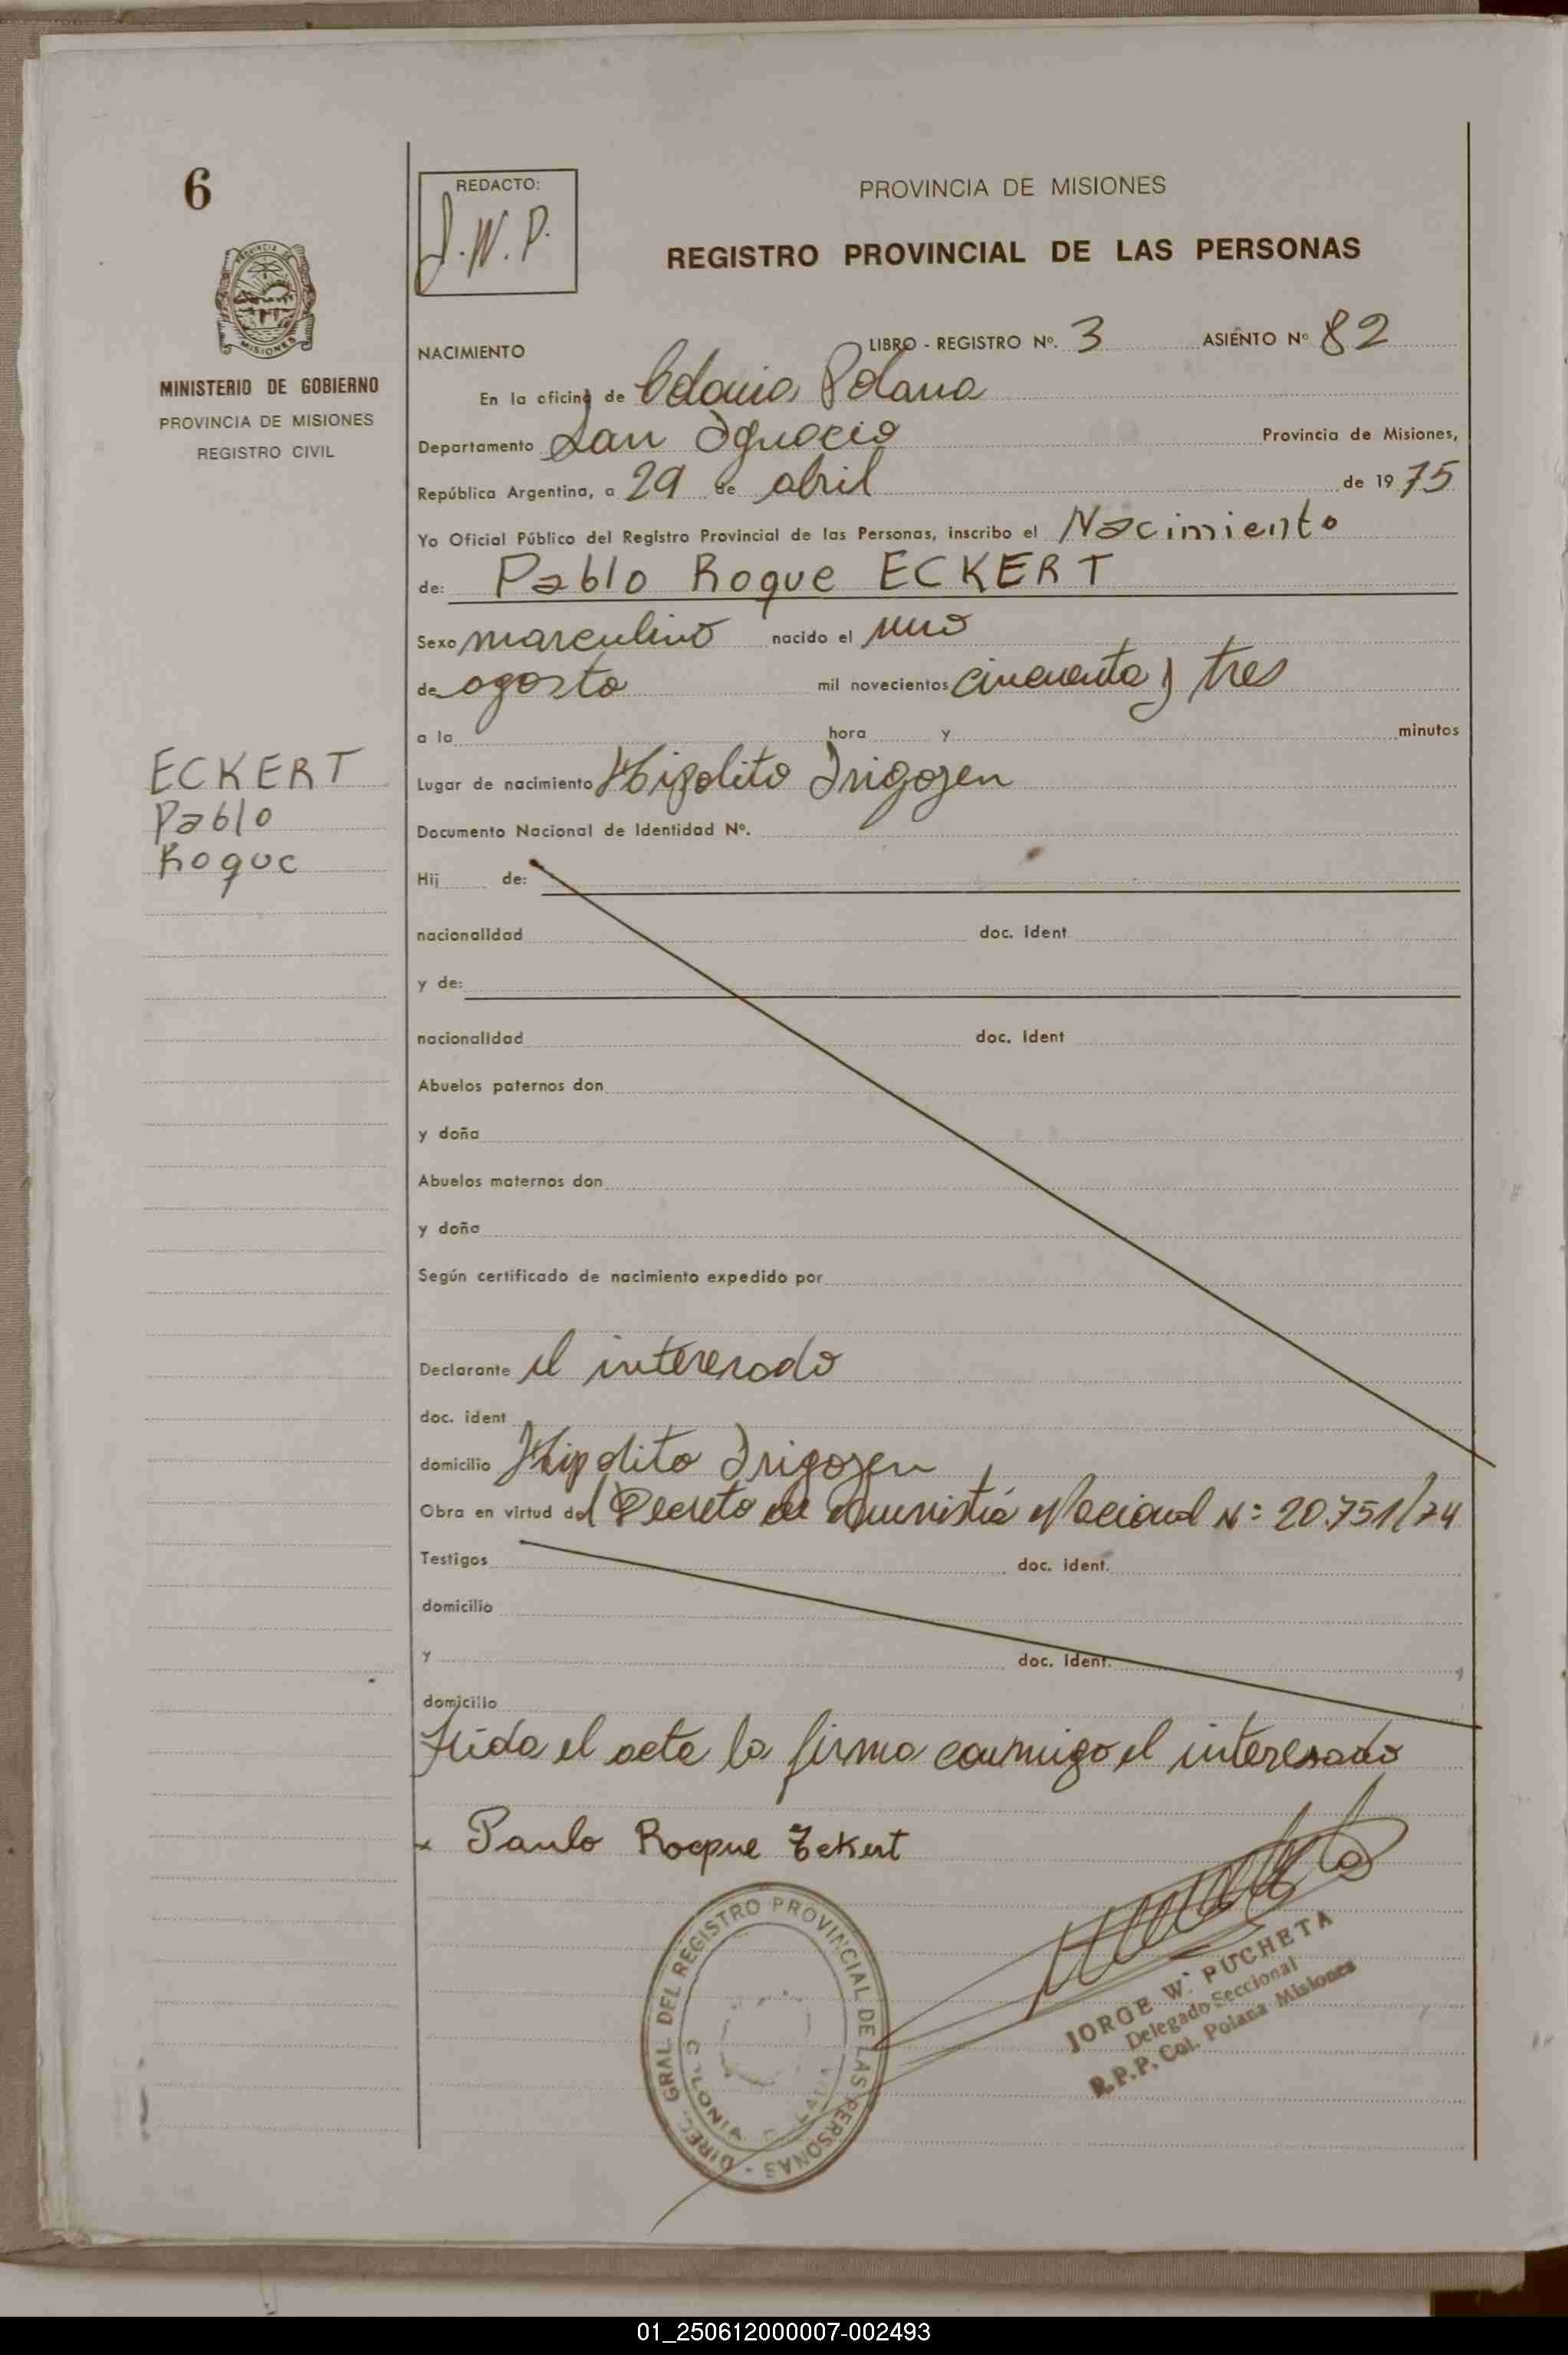 6
PROVINCIA DE
MISIONES
MINISTERIO DE GOBIERNO
PROVINCIA DE MISIONES
REGISTRO CIVIL
ECKERT
Pablo
Roque
REDACTO:
J.W.P.
PROVINCIA DE MISIONES
REGISTRO PROVINCIAL DE LAS PERSONAS
NACIMIENTO LIBRO - REGISTRO Nº. 3 ASIENTO Nº 82
En la oficina de Colonia Polana
Departamento San Ignacio Provincia de Misiones,
República Argentina, a 29 de abril de 19 75
Yo Oficial Público del Registro Provincial de las Personas, inscribo el Nacimiento
de: Pablo Roque ECKERT
Sexo masculino nacido el uno
de agosto mil novecientos cincuenta y tres
a la hora y minutos
Lugar de nacimiento Hipolito Irigoyen
Documento Nacional de Identidad Nº.
Hij de:
nacionalidad doc. ident
y de:
nacionalidad doc. ident
Abuelos paternos don
y doña
Abuelos maternos don
y doña
Según certificado de nacimiento expedido por
Declarante el interesado
doc. ident
domicilio Hipolito Irigoyen
Obra en virtud del Decreto de Amnistía Nacional Nº 20.751/74
Testigos doc. ident.
domicilio
y doc. ident.
domicilio
Leida el acta la firma conmigo el interesado
x Paulo Roque Eckert
DIREC. GRAL. DEL REGISTRO PROVINCIAL DE LAS PERSONAS -
COLONIA
JORGE W. PUCHETA
Delegado Seccional
R.P.P. Col. Polana Misiones
01_250612000007-002493